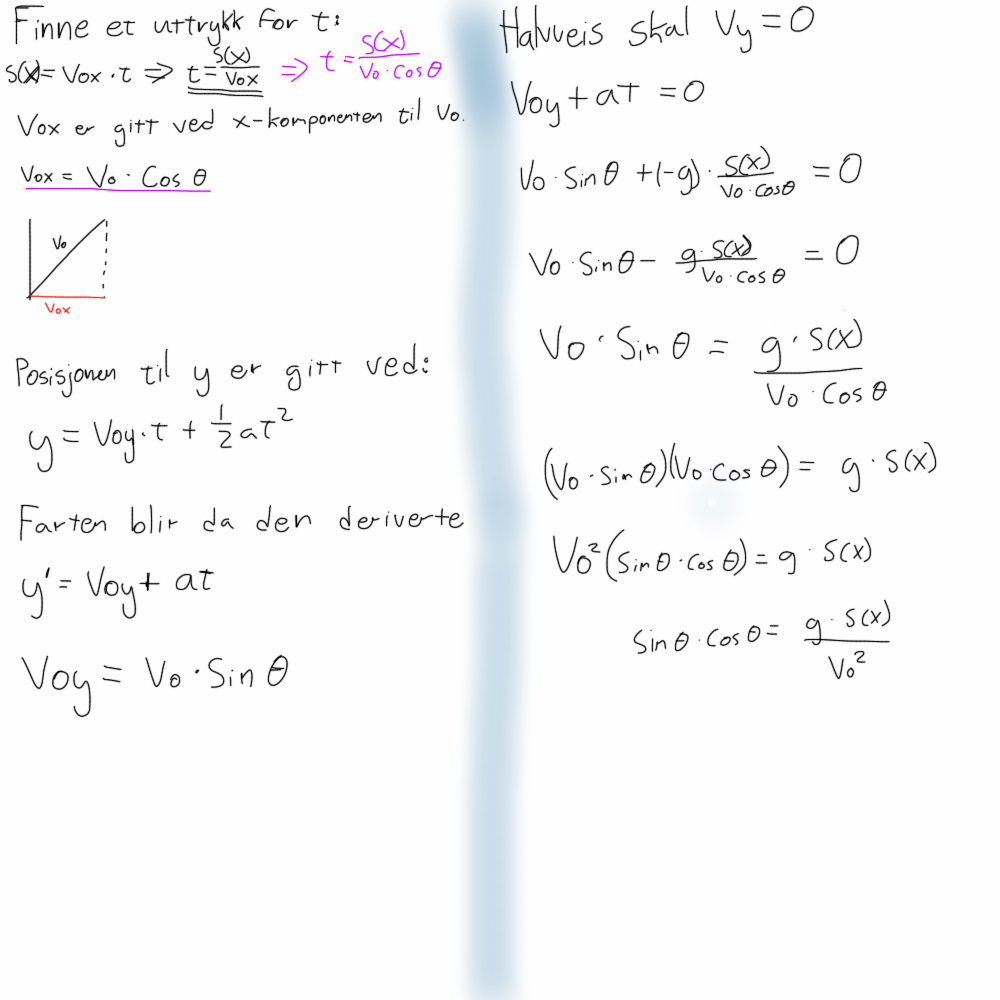 Finne et uttrykk for t:
S(x) = Vox · t ⇒ t = S(x)/Vox ⇒ t = S(x)/(Vo · Cos θ)
Vox er gitt ved x-komponenten til Vo.
Vox = Vo · Cos θ
Vo
Vox
Posisjonen til y er gitt ved:
y = Voy · t + 1/2 at²
Farten blir da den deriverte
y' = Voy + at
Voy = Vo · Sin θ
Halvveis skal Vy = 0
Voy + at = 0
Vo · Sin θ + (-g) · S(x)/(Vo · Cos θ) = 0
Vo · Sin θ - (g · S(x))/(Vo · Cos θ) = 0
Vo · Sin θ = (g · S(x))/(Vo · Cos θ)
(Vo · Sin θ)(Vo · Cos θ) = g · S(x)
Vo² (Sin θ · Cos θ) = g · S(x)
Sin θ · Cos θ = (g · S(x))/Vo²